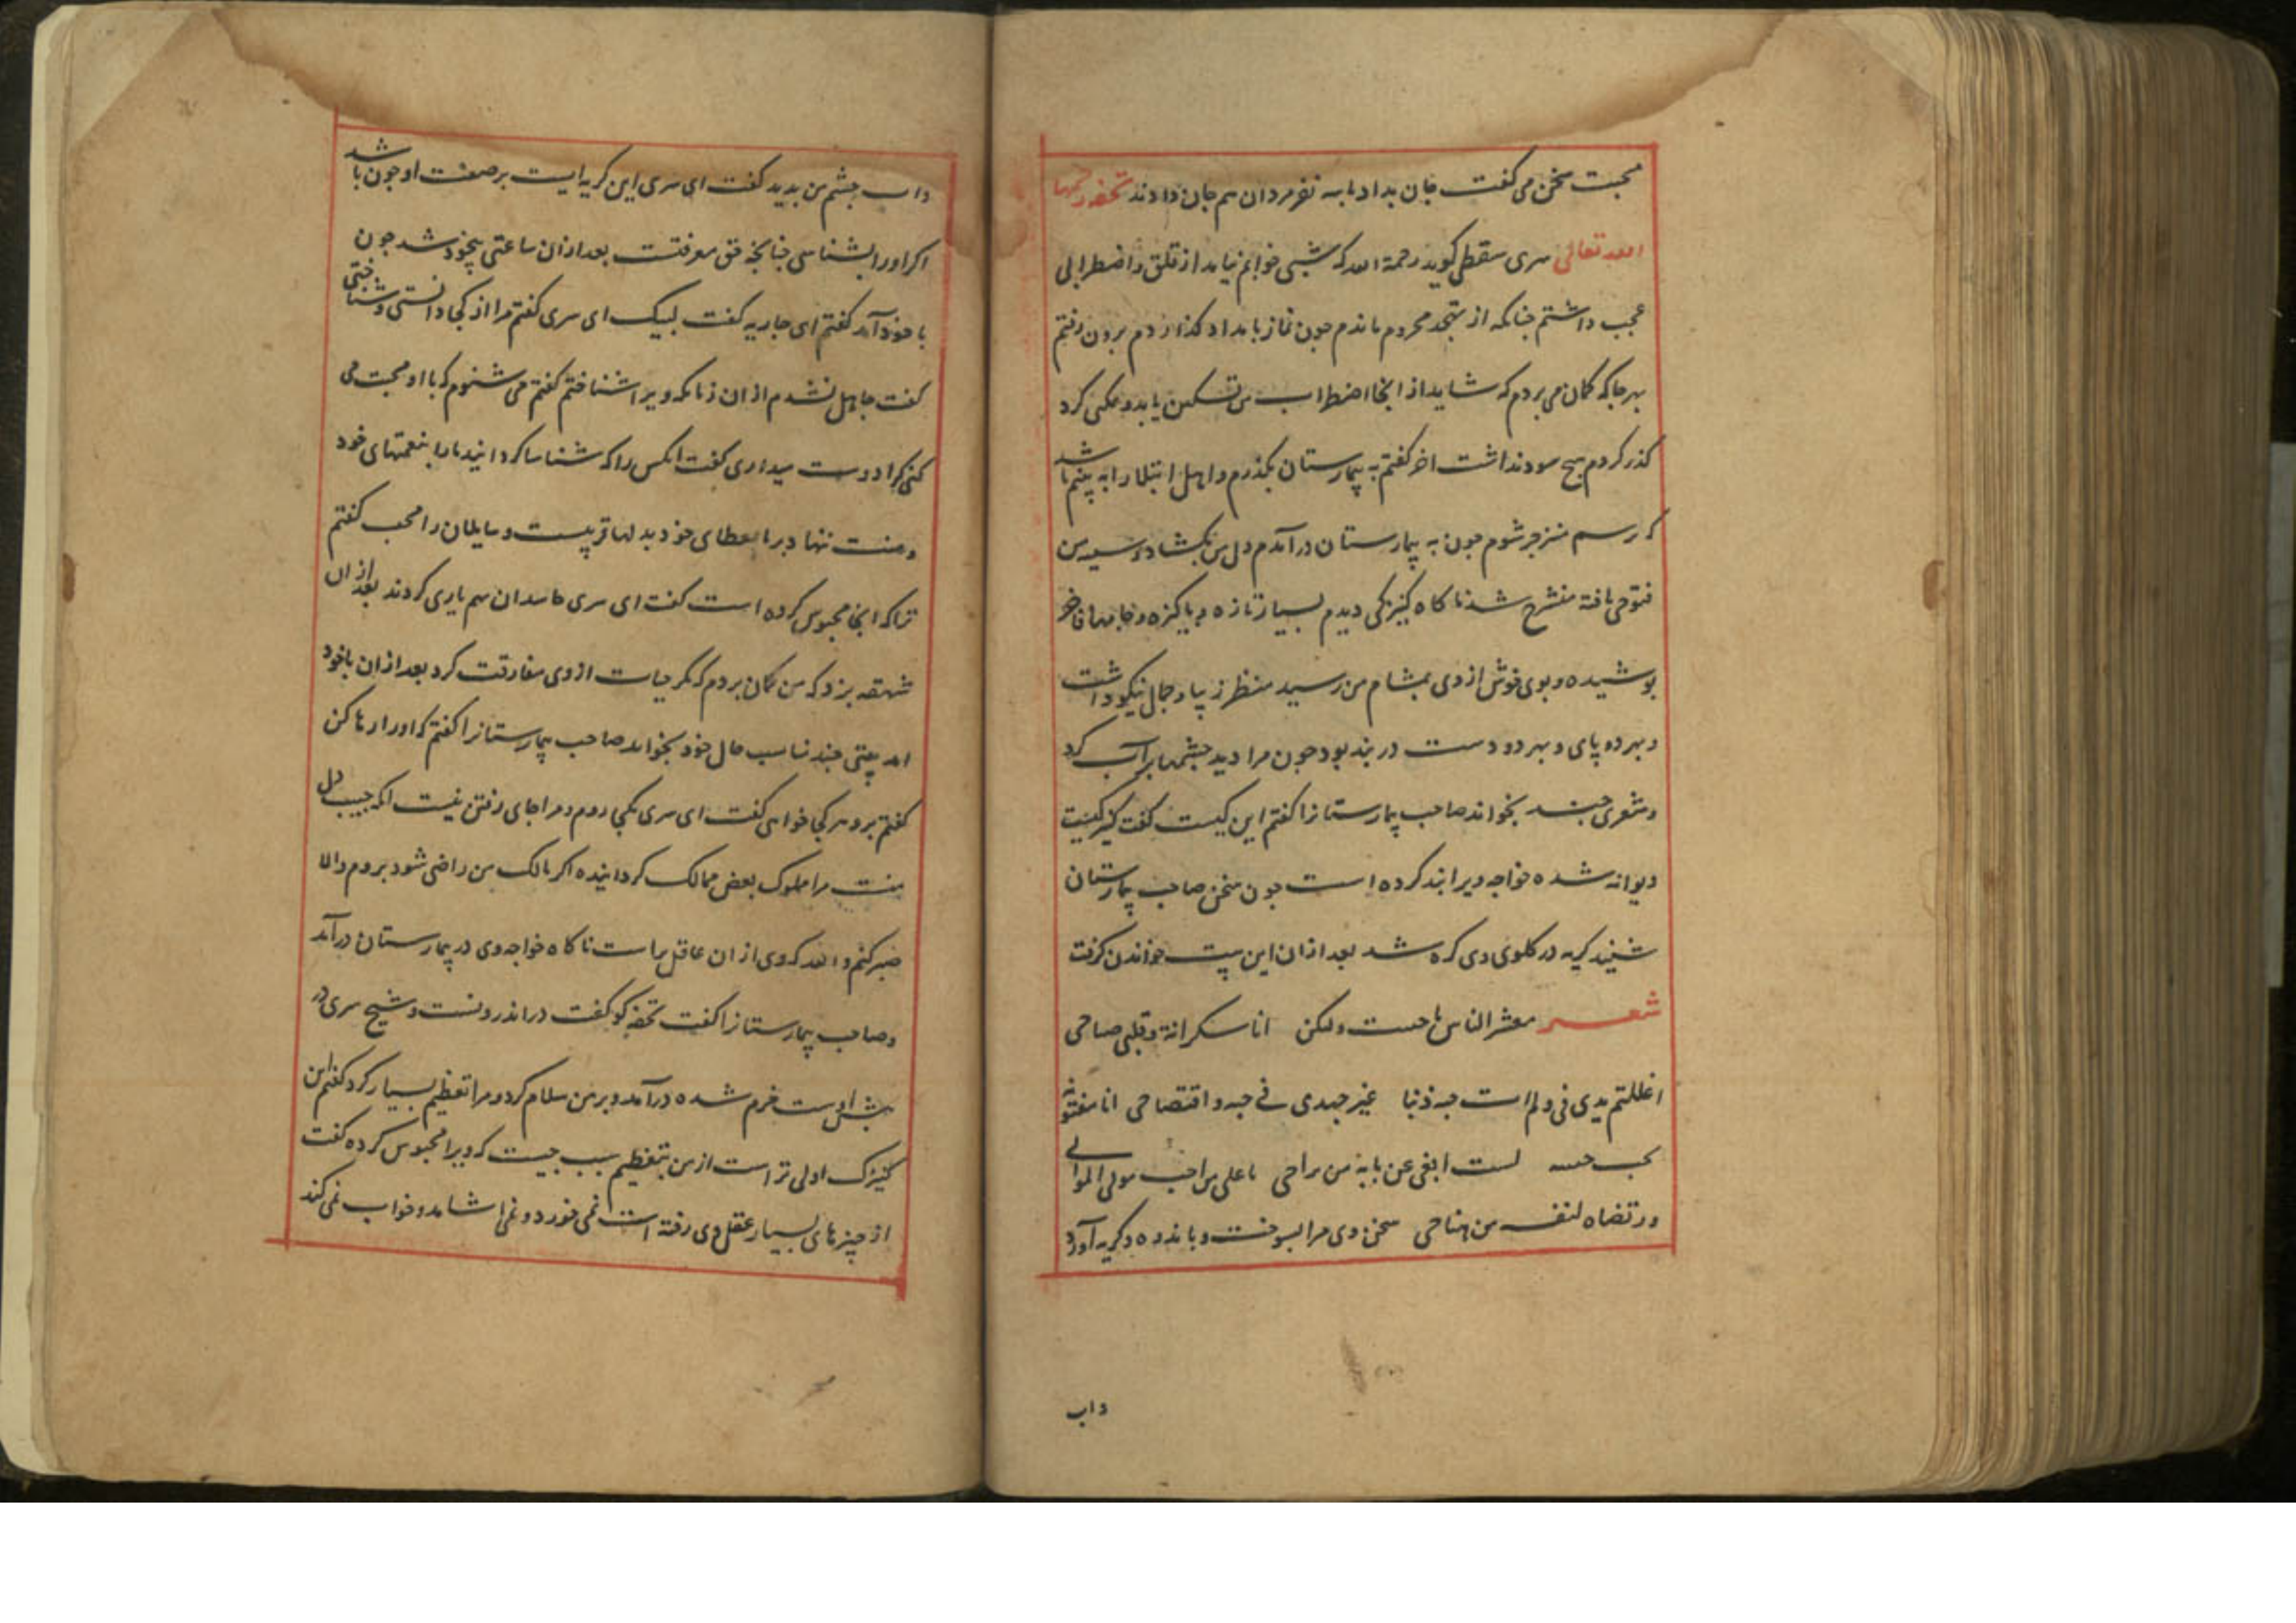 محبت سخن می کفت جان بداد با سه نفر مردان هم جان دادند تحفه رحمها
الله تعالی سری سقطی کوید رحمة الله که شبی خوابم نیامد از قلق و اضطرابی
عجب داشتم چنانکه از تهجد محروم ماندم جون نماز بامداد کذاردم برون رفتم
بهر جا که کمان می بردم که شاید از انجا اضطراب من تسکین یابد و مکی کرد
کذر کردم هیچ سود نداشت اخر کفتم به بیمارستان بکذرم و اهل ابتلا را به بینم باشد
که رسم منزجر شوم جون به بیمارستان در آمدم دل من بکشاد و سینه من
فتوحی یافته منشرح شد ناکاه کنیزکی دیدم بسیار تازه و پاکیزه و جامهاء فاخر
پوشیده و بوی خوش از وی بمشام من رسید منظر زیبا و جمال نیکو داشت
و بهر دو پای و بهر دو دست در بند بود جون مرا دید جشمها پر آب کرد
و شعری جند بخواند صاحب بیمارستانرا کفتم این کیست کفت کنیزکیست
دیوانه شده خواجه ویرا بند کرده است جون سخن صاحب بیمارستان
شنید کریه در کلوی وی کره شد بعد از ان این بیت خواندن کرفت
شعر معشر الناس ما جننت ولکن انا سکرانة و قلبی صاحی
اغللتم یدی فی ولم است جه ذنبا غیر جهدی فی حبه و افتضاحی انا مفتونة
بحب حبیب لست ابغی عن بابه من براحی ما علی من احب مولی الموالی
ورتضاه لنفسه من جناحی سخن وی مرا بسوخت و باندوه و کریه آورد
داب
داب جشم من بدید کفت ای سری این کریه ایست بر صفت او جون باشد
اکر او را بشناسی جنانجه حق معرفتست بعد از ان ساعتی بیخود شد جون
با خود آمد کفتم ای جاریه کفت لبیک ای سری کفتم مرا از کجا دانستی و شناختی
کفت جاهل نشدم از ان زمانکه ویرا شناختم کفتم می شنوم که با او محبت می
کنی کرا دوست میداری کفت انکس را که شناسا کردانید ما را بنعمتهای خود
و منت نهاد بر ما بعطای خود بدلها قریبست و سایلان را مجیب کفتم
ترا که اینجا محبوس کرده است کفت ای سری حاسدان هم یاری کردند بعد از ان
شهقه بزد که من کمان بردم که مکر حیات از وی مفارقت کرد بعد از ان باخود
امد بیتی جند مناسب حال خود بخواند صاحب بیمارستانرا کفتم که او را رها کن
کفتم برو هر کجا خواهی کفت ای سری بکجا روم و مرا جای رفتن نیست انکه حبیب دل
منست مرا مملوک بعض ممالک کردانیده اکر مالک من راضی شود بروم والا
صبر کنم والله که وی از ان عاقل تر است ناکاه خواجه وی در بیمارستان در آمد
و صاحب بیمارستانرا کفت تحفه کو کفت در اندرونست و شیخ سری در
پیش اوست خرم شده در آمد و بر من سلام کرد و مرا تعظیم بسیار کرد کفتم این
کنیزک اولی تر است از من بتعظیم سبب جیست که ویرا محبوس کرده کفت
از چیزهای بسیار عقل وی رفته است نمی خورد و نمی اشامد و خواب نمی کند